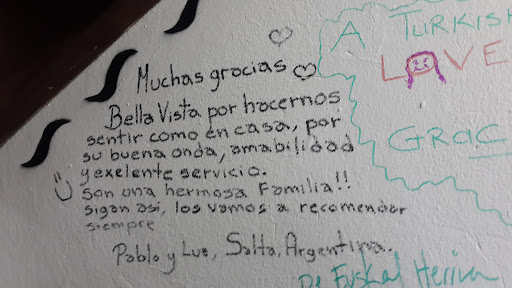 Muchas gracias
Bella Vista por hacernos
sentir como en casa, por
su buena onda, amabilidad
y exelente servicio.
Son una hermosa Familia!!
sigan asi, los vamos a recomendar
siempre
Pablo y Luz, Salta, Argentina.
A TURKISH
LOVE
GRAC
De Euskal Herria